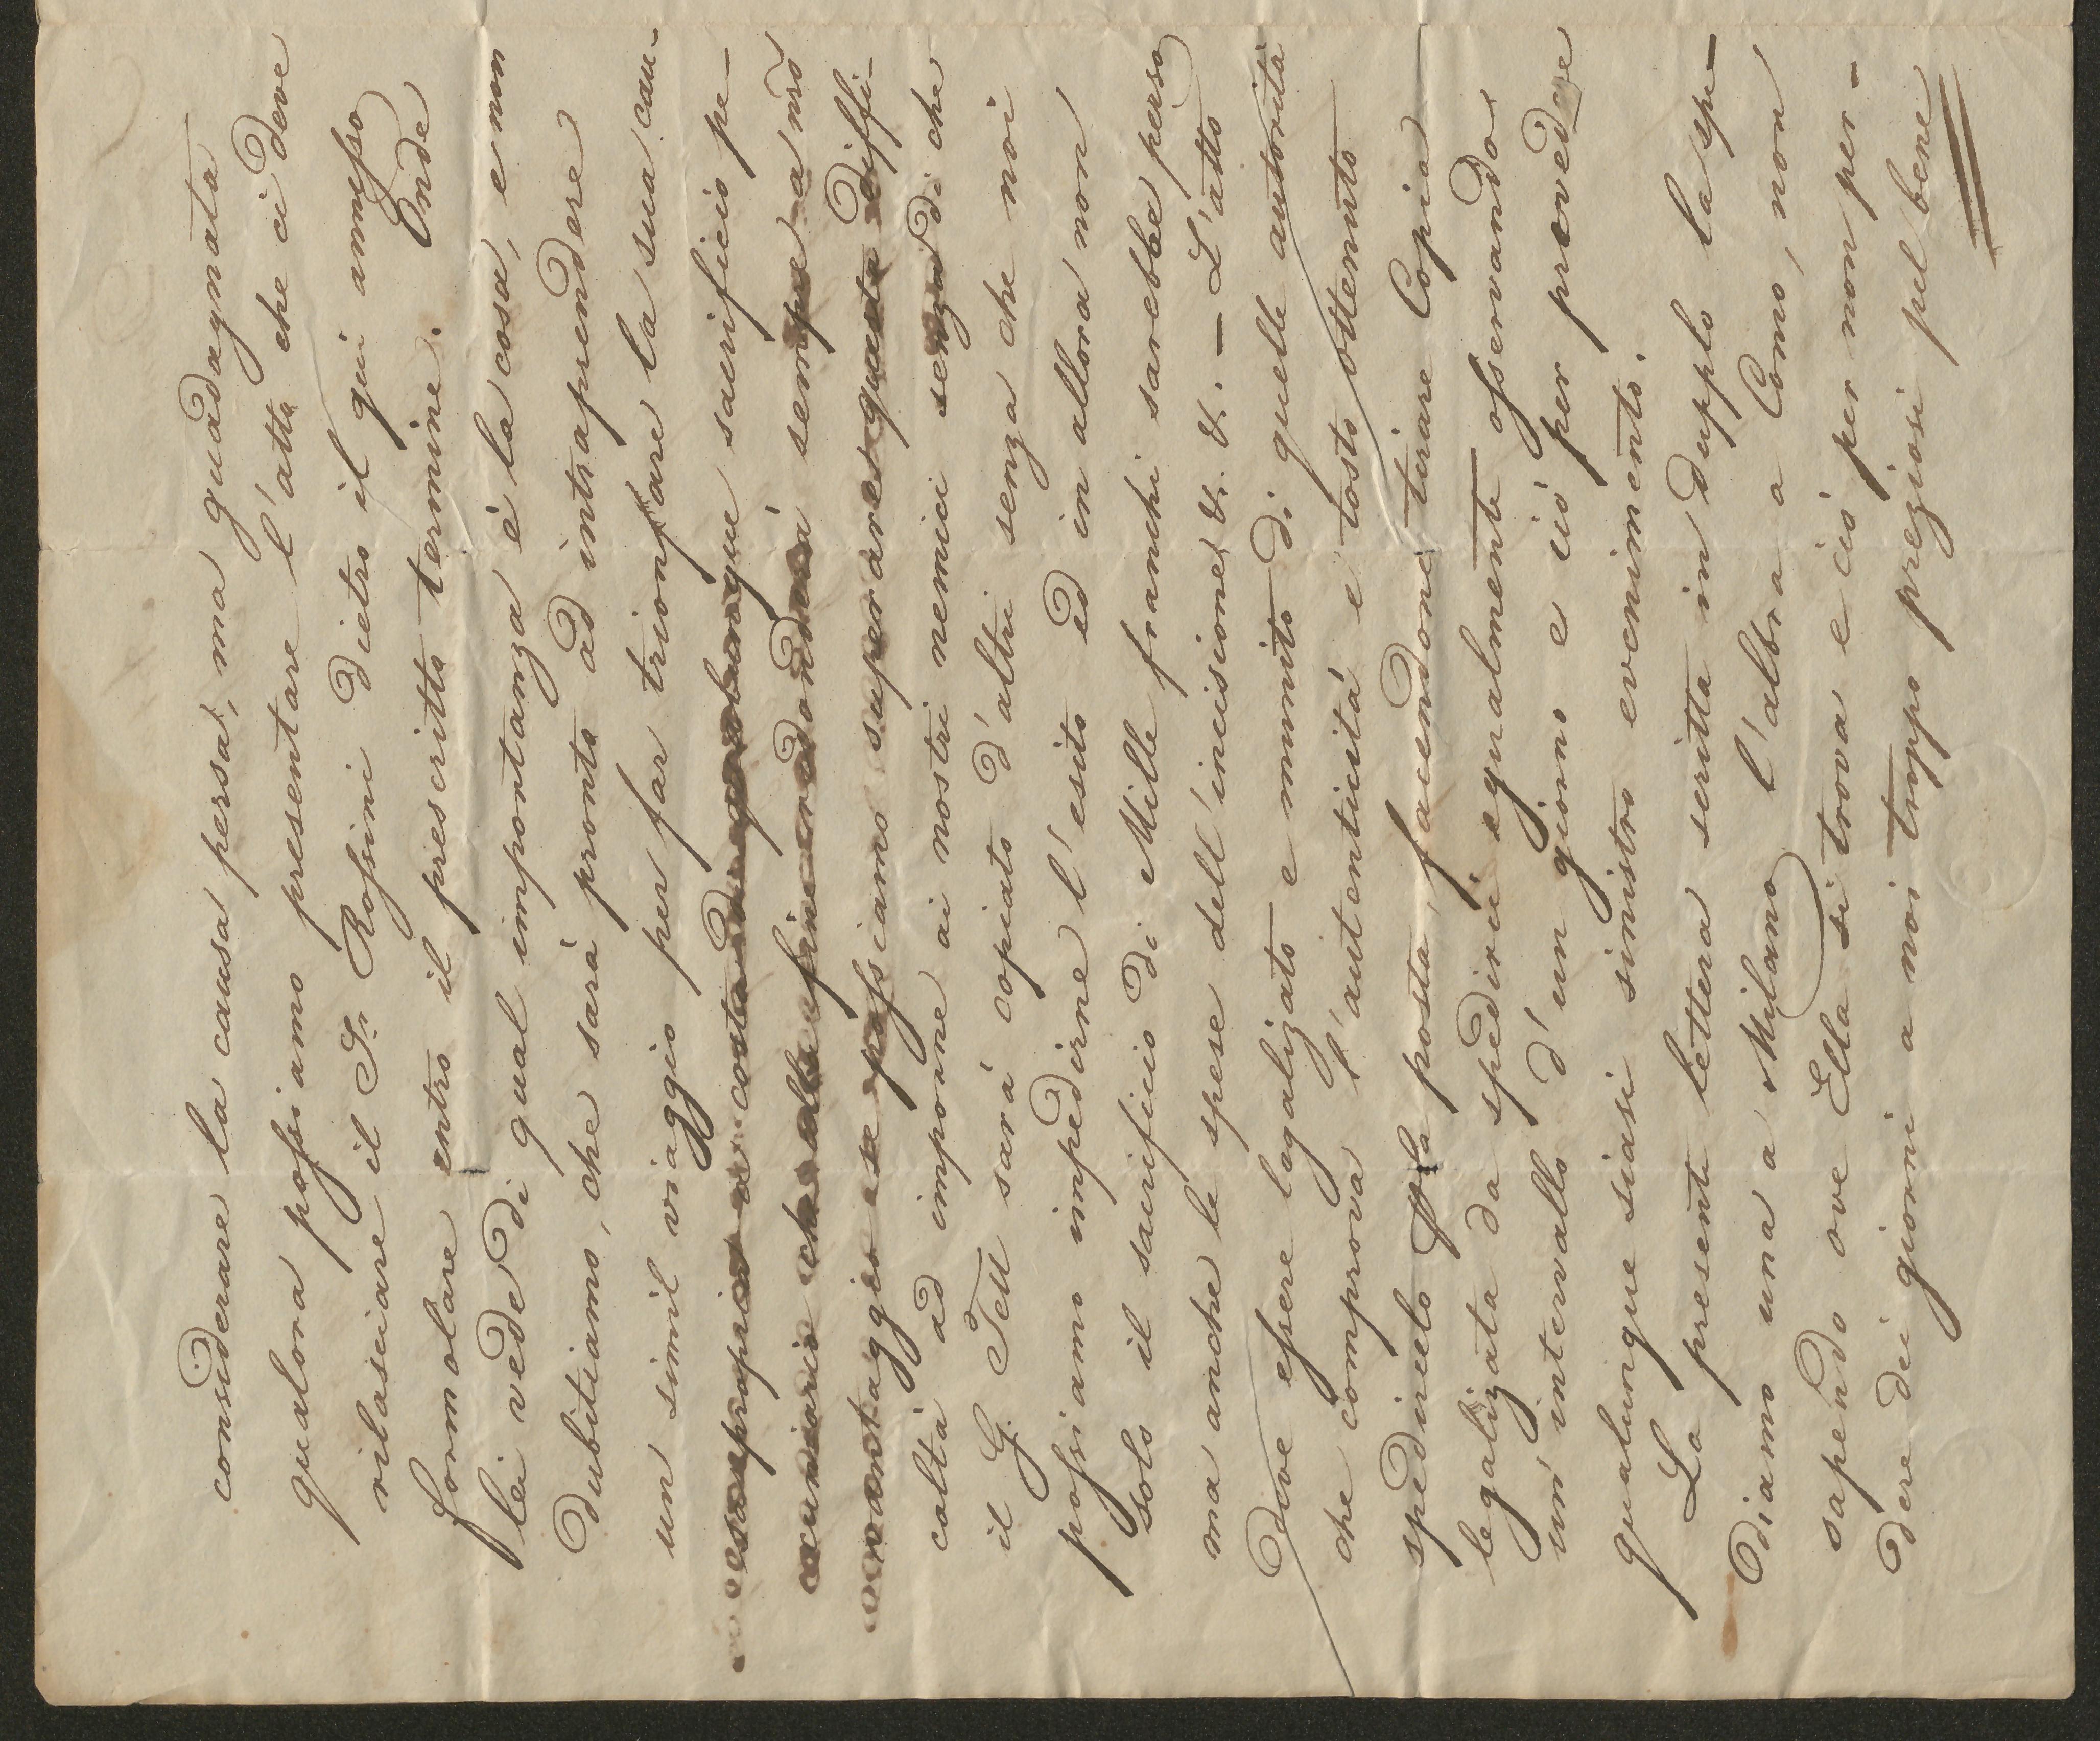 considerare la causa persa, ma guadagnata
qualora possiamo presentare l'atto che ci deve
rilasciare il Sr. Rossini dietro il qui annesso
formolare entro il prescritto termine. Onde
lei vede di qual importanza è la cosa, e non
dubitiamo, che sarà pronto ad intraprendere
un simil viaggio per far trionfare la sua cau-
sa propria a costo di qualunque sacrificio pe-
cuniario che alla fine ridonderà sempre a nro
vantaggio se possiamo superare questa diffi-
coltà ad imporre ai nostri nemici senza di che
il G. Tell sarà copiato d'altri senza che noi
possiamo impedirne l'esito ed in allora non
solo il sacrificio di Mille franchi sarebbe perso
ma anche le spese dell'incisione &. &. — L'atto
deve essere legalizato e munito di quelle autorità
che comprova l'autenticità e tosto ottenuto
spedircelo p la posta, facendone tirare Copia
legalizata da spedirci egualmente osservando
un intervallo d'un giorno e ciò per provedere
qualunque siasi sinistro evenimento.
La presente lettera scritta in dupplo la spe-
diamo una a Milano l'altra a Como, non
sapendo ove Ella si trova e ciò per non per-
dere dei giorni a noi troppo preziosi pel bene